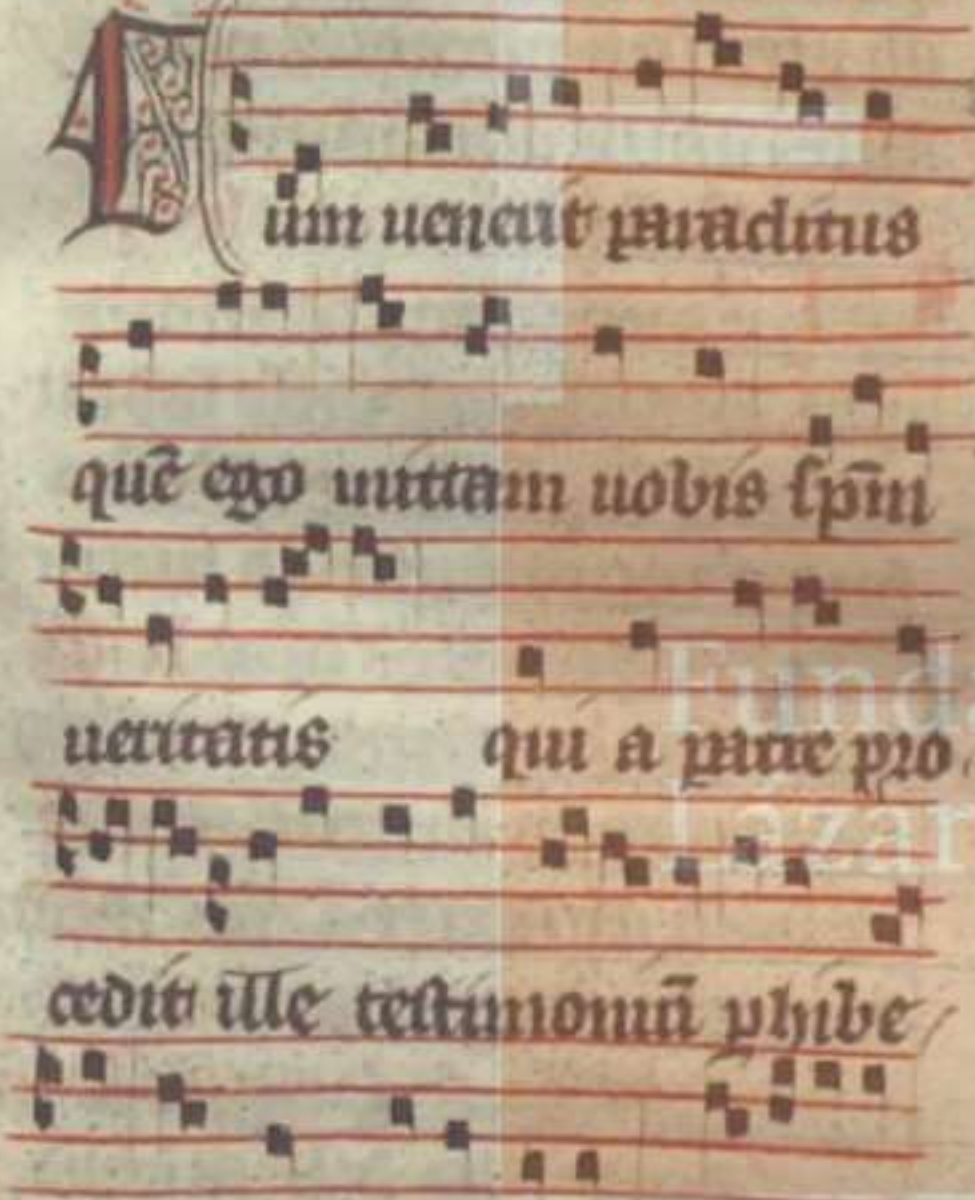 Cum uenerit paraclitus
quē ego mittam uobis sp̄m
ueritatis qui a patre pro
cedit ille testimoniū phibe
Fund
Lázar